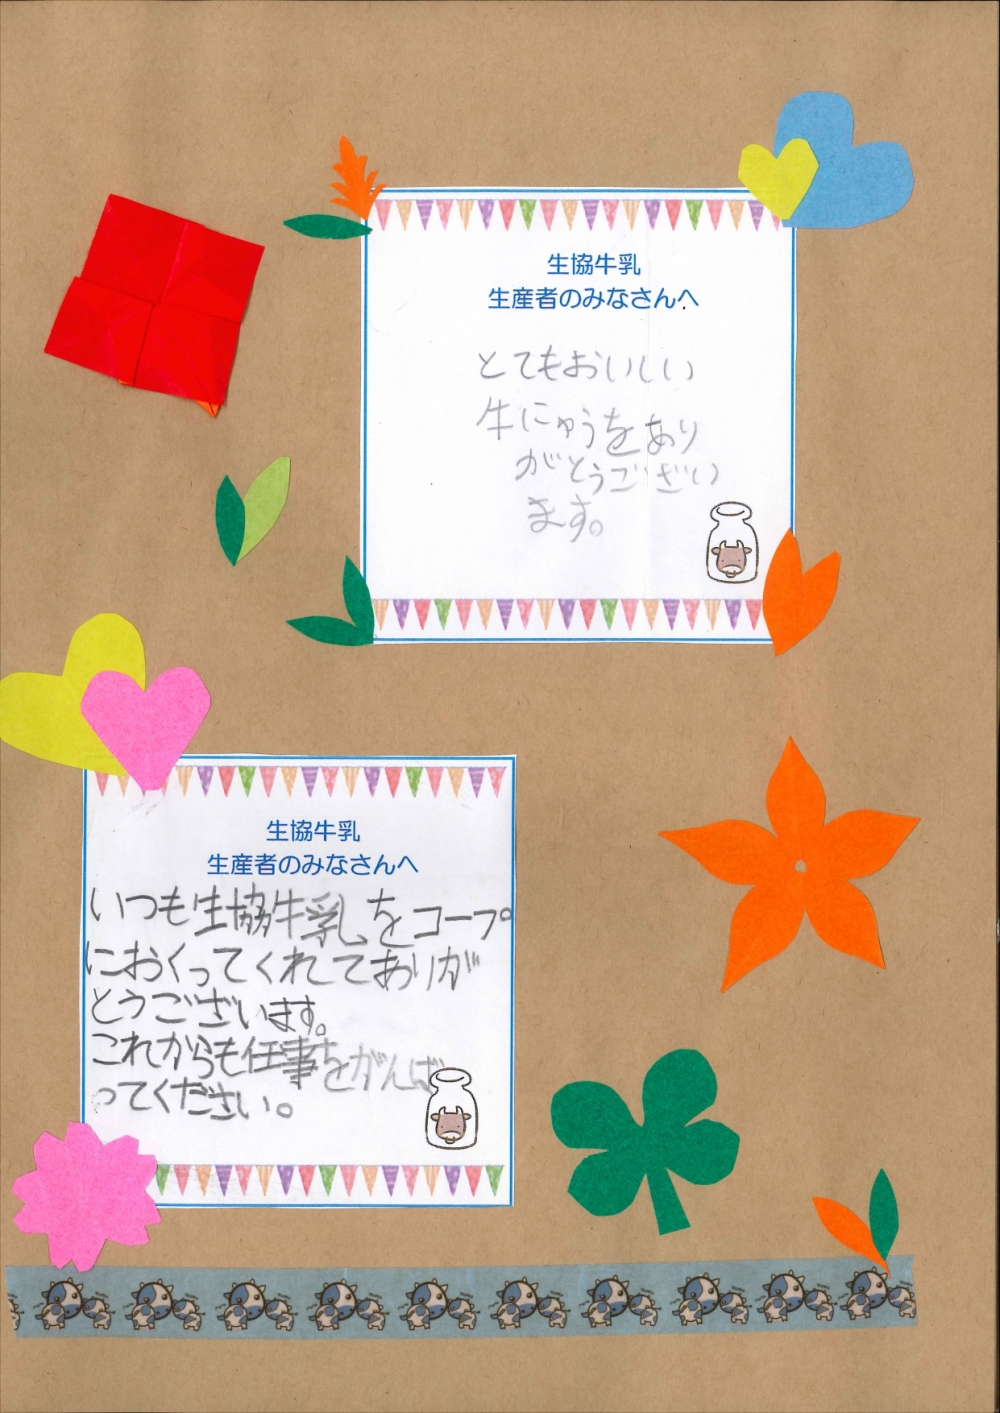 生協牛乳
生産者のみなさんへ
とてもおいしい
牛にゅうをあり
がとうござい
ます。
生協牛乳
生産者のみなさんへ
いつも生協牛乳をコープ
におくってくれてありが
とうございます。
これからも仕事をがんば
ってください。